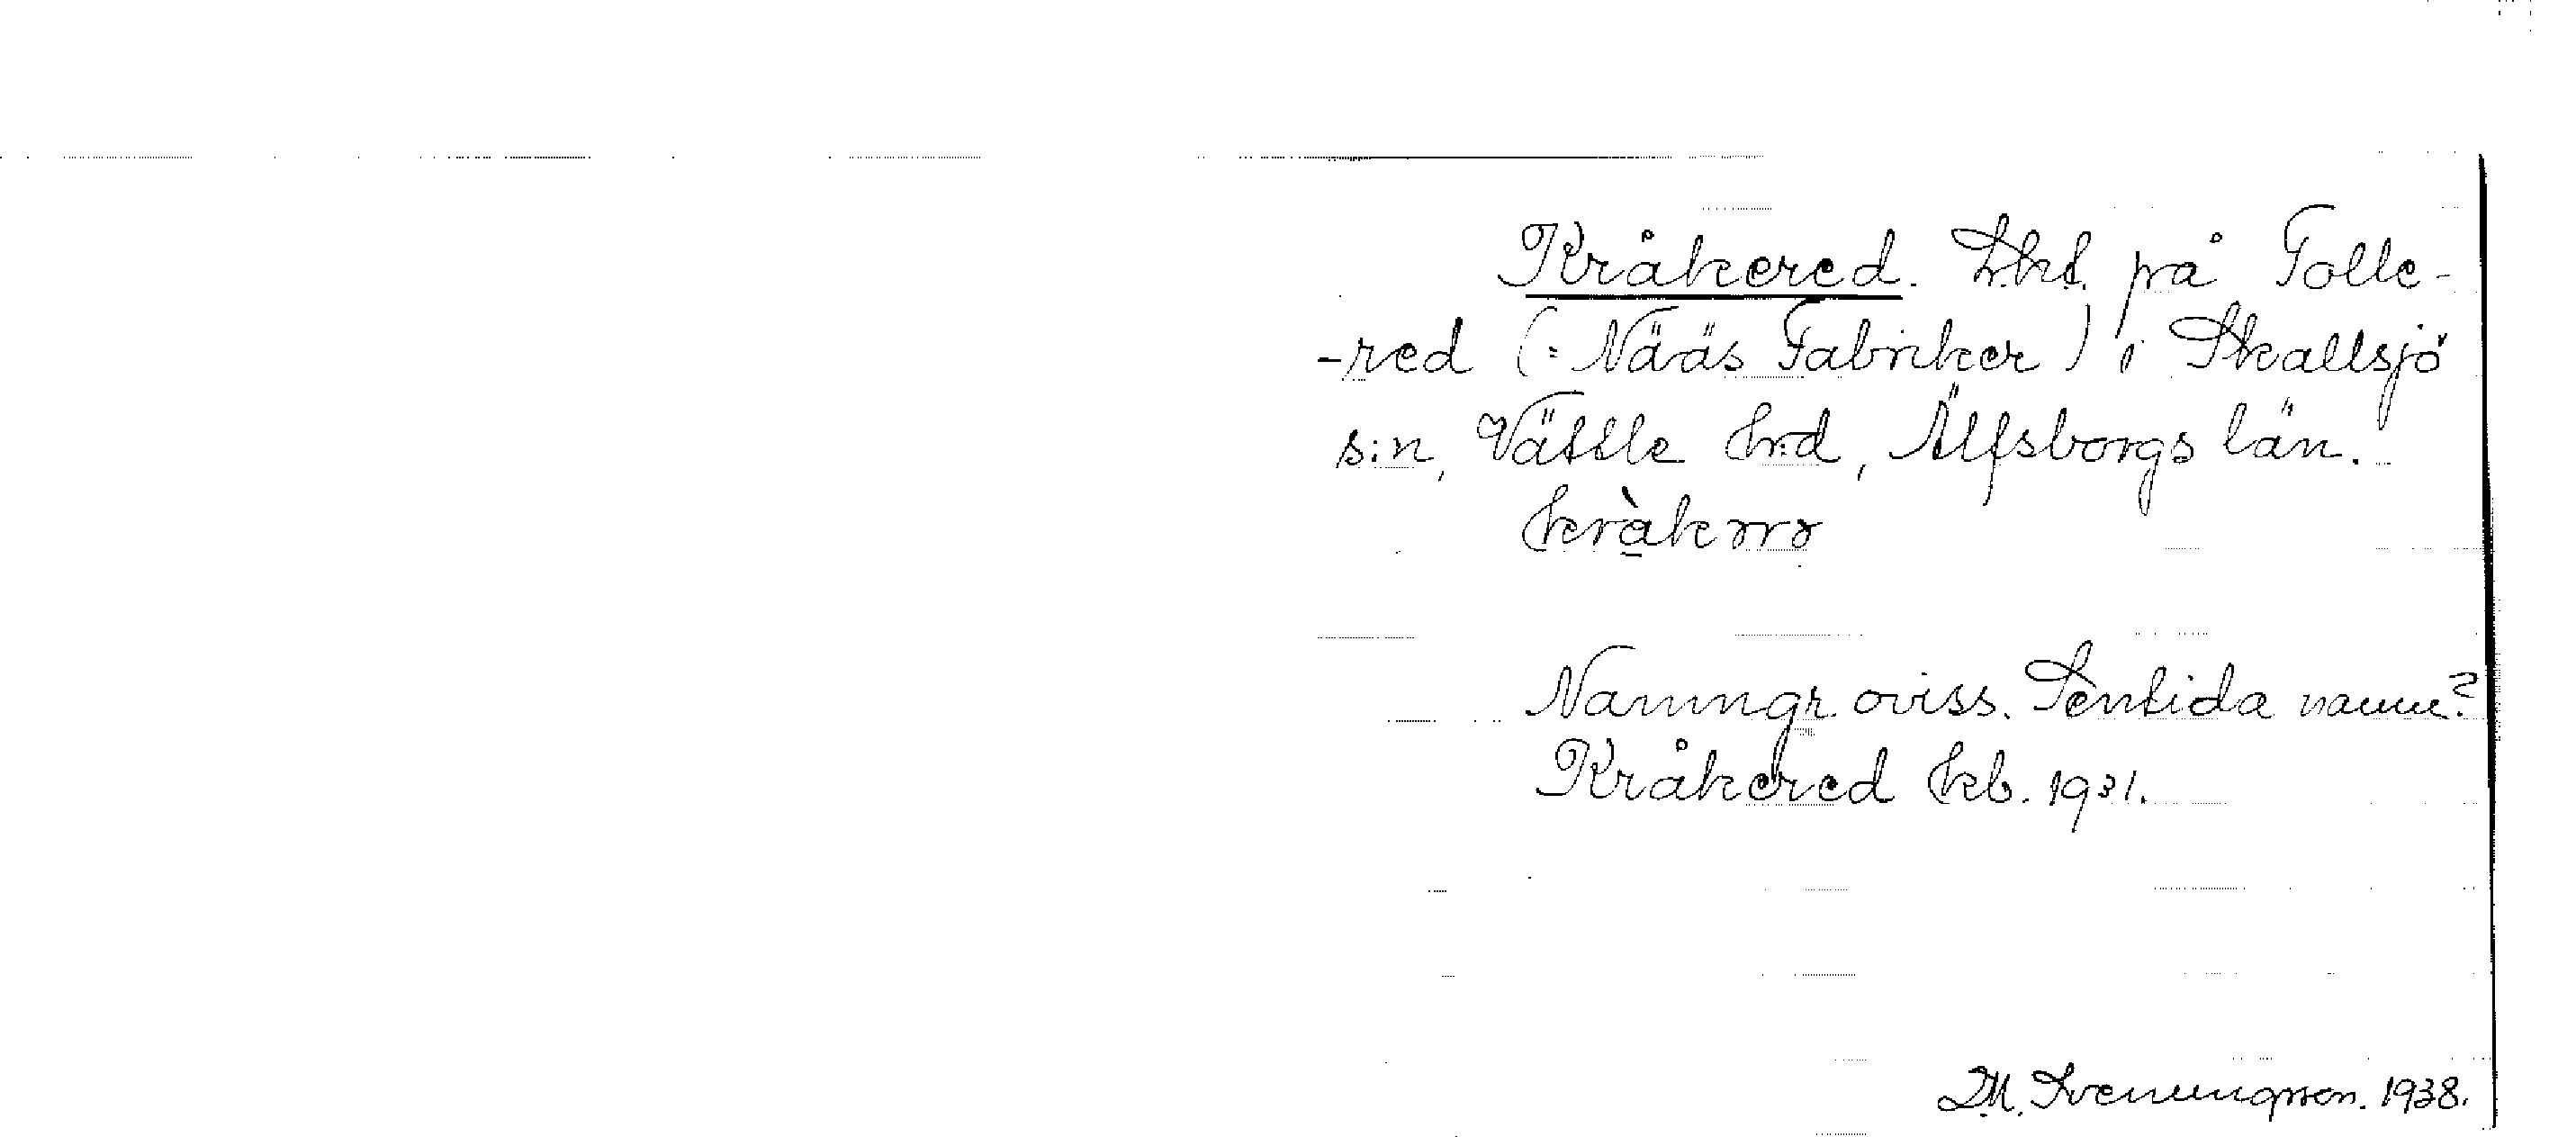 Kråkered. Lht. på Tolle-
-red (= Nääs Fabriker) i Skallsjö
s:n, Vättle hrd, Älfsborgs län.
kràkərə
Namngr. oviss. Sentida namn?
Kråkered kb. 1931.
D.M. Svenungsson. 1938.